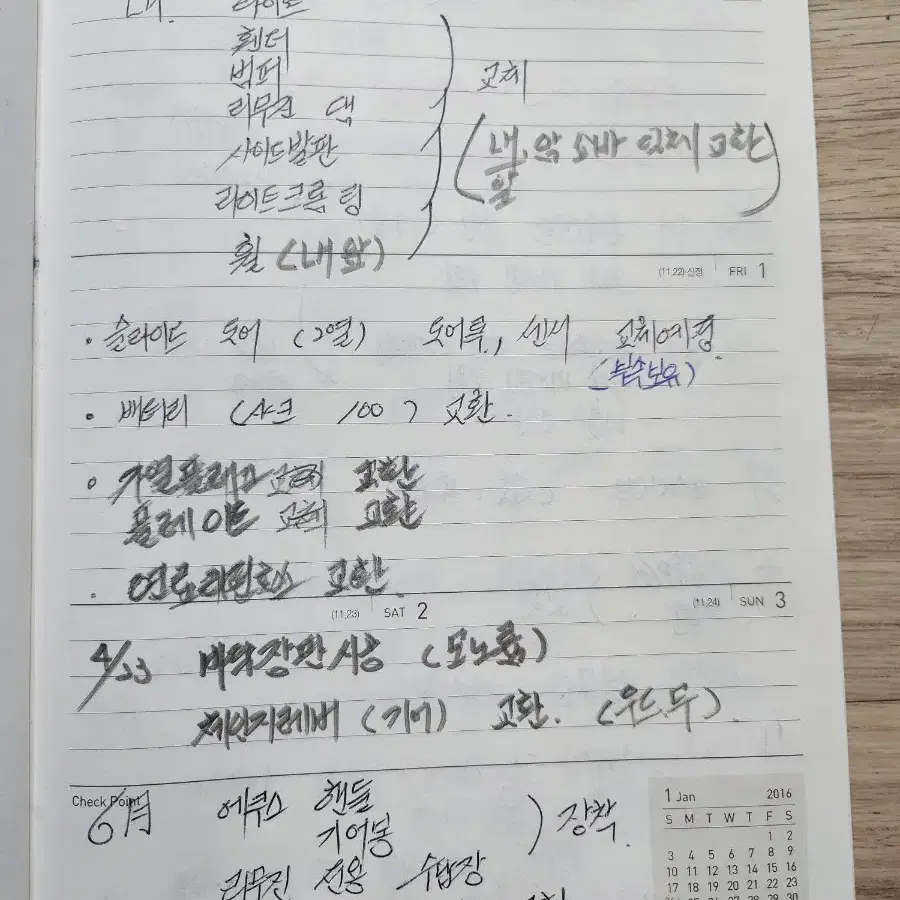 라이트
휀더
범퍼
리무진 댐
사이드발판
라이트크롬 팅
휠 (내 앞)
교체
(내, 악 쇼바 일체 교환)
앞
(11.22) 신정 FRI 1
• 슬라이드 도어 (2열) 도어록, 센서 교체예정.
(부속보유)
• 배터리 (사크 100) 교환.
• 가열플래그 교체 교환
플레이트 교체 교환
• 연료리턴호스 교환
(11.23) SAT 2
(11.24) SUN 3
4/23 바닥장판시공 (모노륨)
체인지레버 (기어) 교환. (우드, 두).
Check Point
6月 에쿠스 핸들
기어봉
) 장착.
리무진 전용 수납장
1 Jan 2016
S M T W T F S
1 2
3 4 5 6 7 8 9
10 11 12 13 14 15 16
17 18 19 20 21 22 23